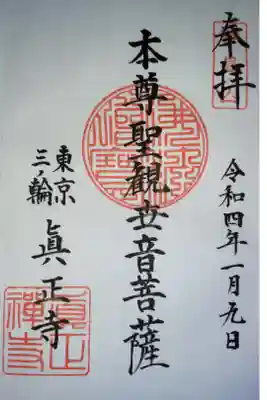 奉拝
令和四年一月元日
本尊聖観世音菩薩
東京
三ノ輪
眞正寺